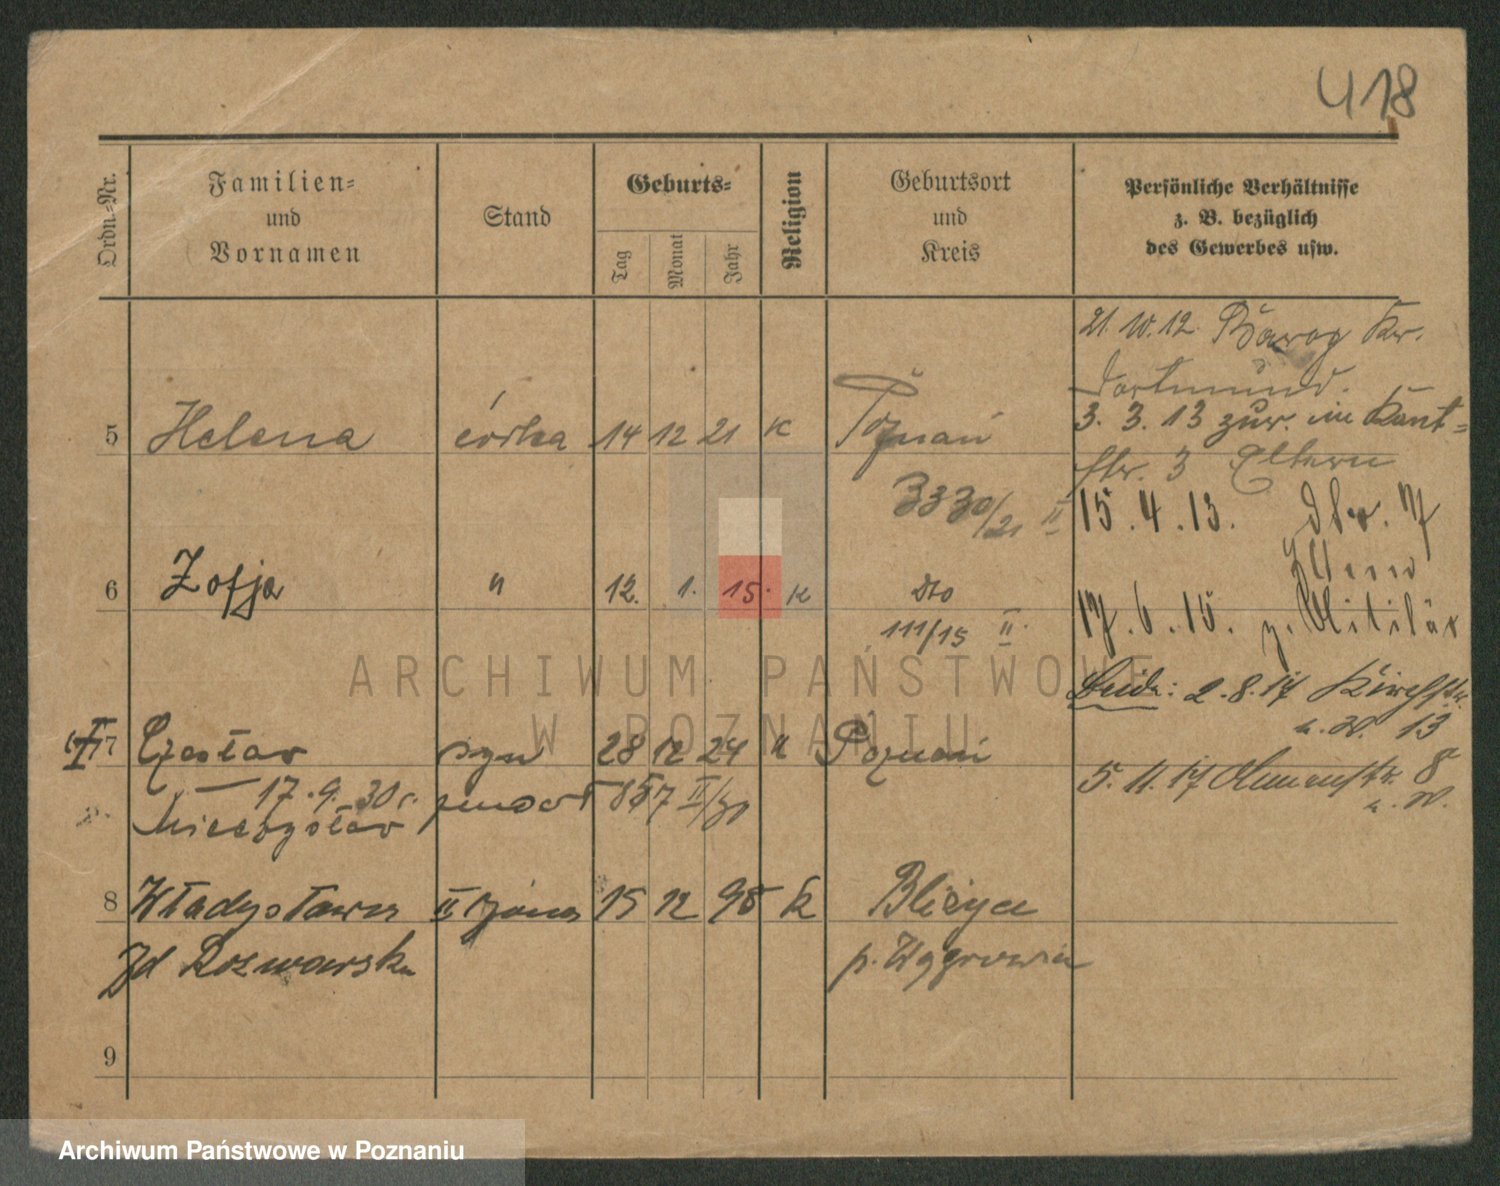 418
Ordn=Nr.
Familien=
und
Vornamen
Stand
Geburts=
Tag
Monat
Jahr
Religion
Geburtsort
und
Kreis
Persönliche Verhältnisse
z. B. bezüglich
des Gewerbes usw.
21. 10. 12.
Dortmund.
5 Helena córka 14 12 21 K Poznań
3. 3. 13 zur. im Kant=
str. 3 Eltern
3330/21 II
15. 4. 13.
6 Zofja " 12. 1. 15. K dto
111/15 II.
17. 6. 15. z. Militär
2. 8. 17
13
7 Czesław syn 28 12 24 " Poznań
5. 11. 17 8
17. 9. 30 857 II/30
Mieczysław
8 Władysława II żona 15 12 98 K
p. Wągrowiec
9
ARCHIWUM PAŃSTWOWE
W POZNANIU
Archiwum Państwowe w Poznaniu